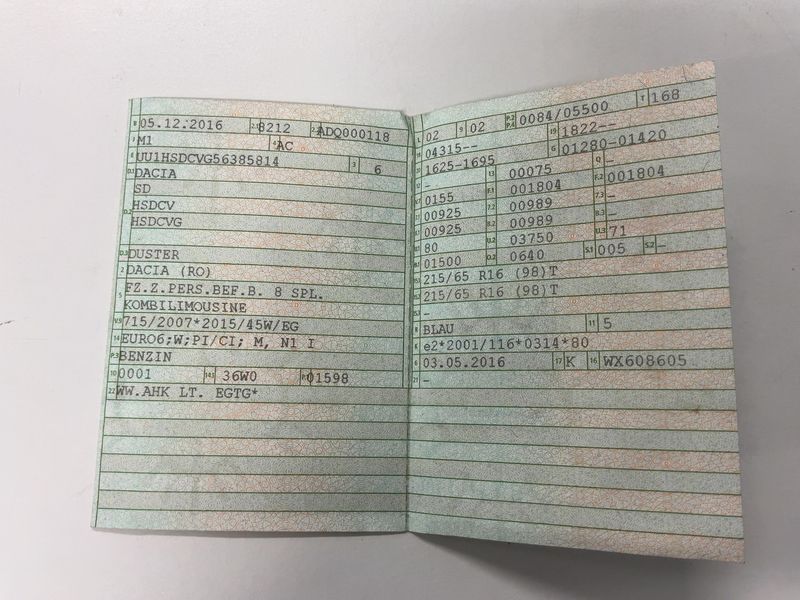 B 05.12.2016 2.1 8212 2.2 ADQ000118
J M1 4 AC
E UU1HSDCVG56385814 3 6
D.1 DACIA
SD
D.2 HSDCV
HSDCVG
D.3 DUSTER
2 DACIA (RO)
5 FZ.Z.PERS.BEF.B. 8 SPL.
KOMBILIMOUSINE
V.9 715/2007*2015/45W/EG
14 EURO6;W;PI/CI; M, N1 I
P.3 BENZIN
10 0001 14.1 36W0 P.1 01598
22 WW.AHK LT. EGTG*
L 02 9 02 P.2 P.4 0084/05500 T 168
18 04315-- 19 1822--
20 1625-1695 G 01280-01420
12 - 13 00075 Q
V.7 0155 F.1 001804 F.2 001804
7.1 00925 7.2 00989 7.3 -
8.1 00925 8.2 00989 8.3 -
U.1 80 U.2 03750 U.3 71
O.1 01500 O.2 0640 S.1 005 S.2 -
15.1 215/65 R16 (98)T
15.2 215/65 R16 (98)T
15.3 -
R BLAU 11 5
K e2*2001/116*0314*80
6 03.05.2016 17 K 16 WX608605
21 -